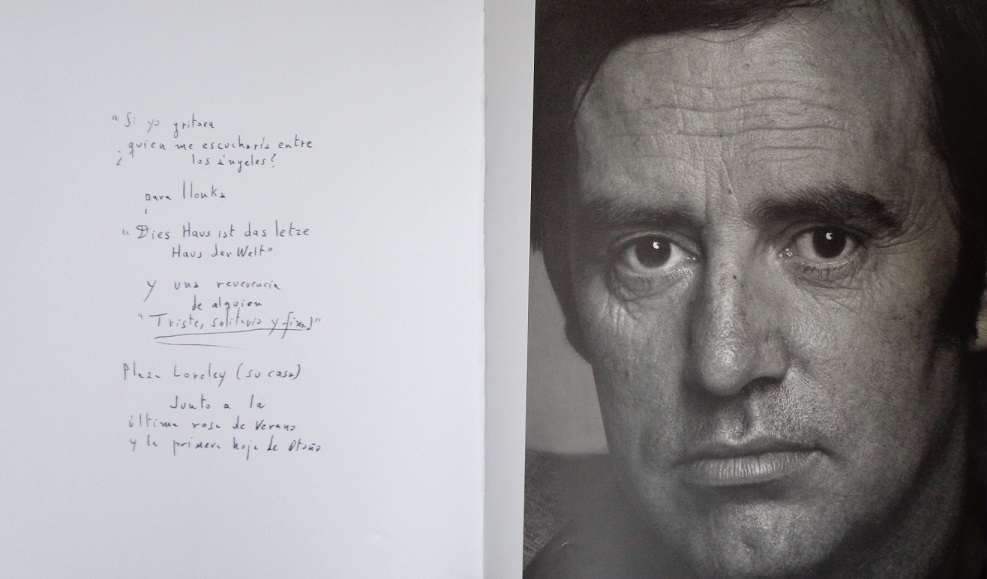 "Si yo gritara
¿quien me escucharía entre
los ángeles?
para Ilonka
"Dies Haus ist das letze
Haus der Welt"
y una reverencia
de alguien
"Triste, solitario y final"
Plaza Loreley (su casa)
Junto a la
última rosa de Verano
y la primera hoja de Otoño